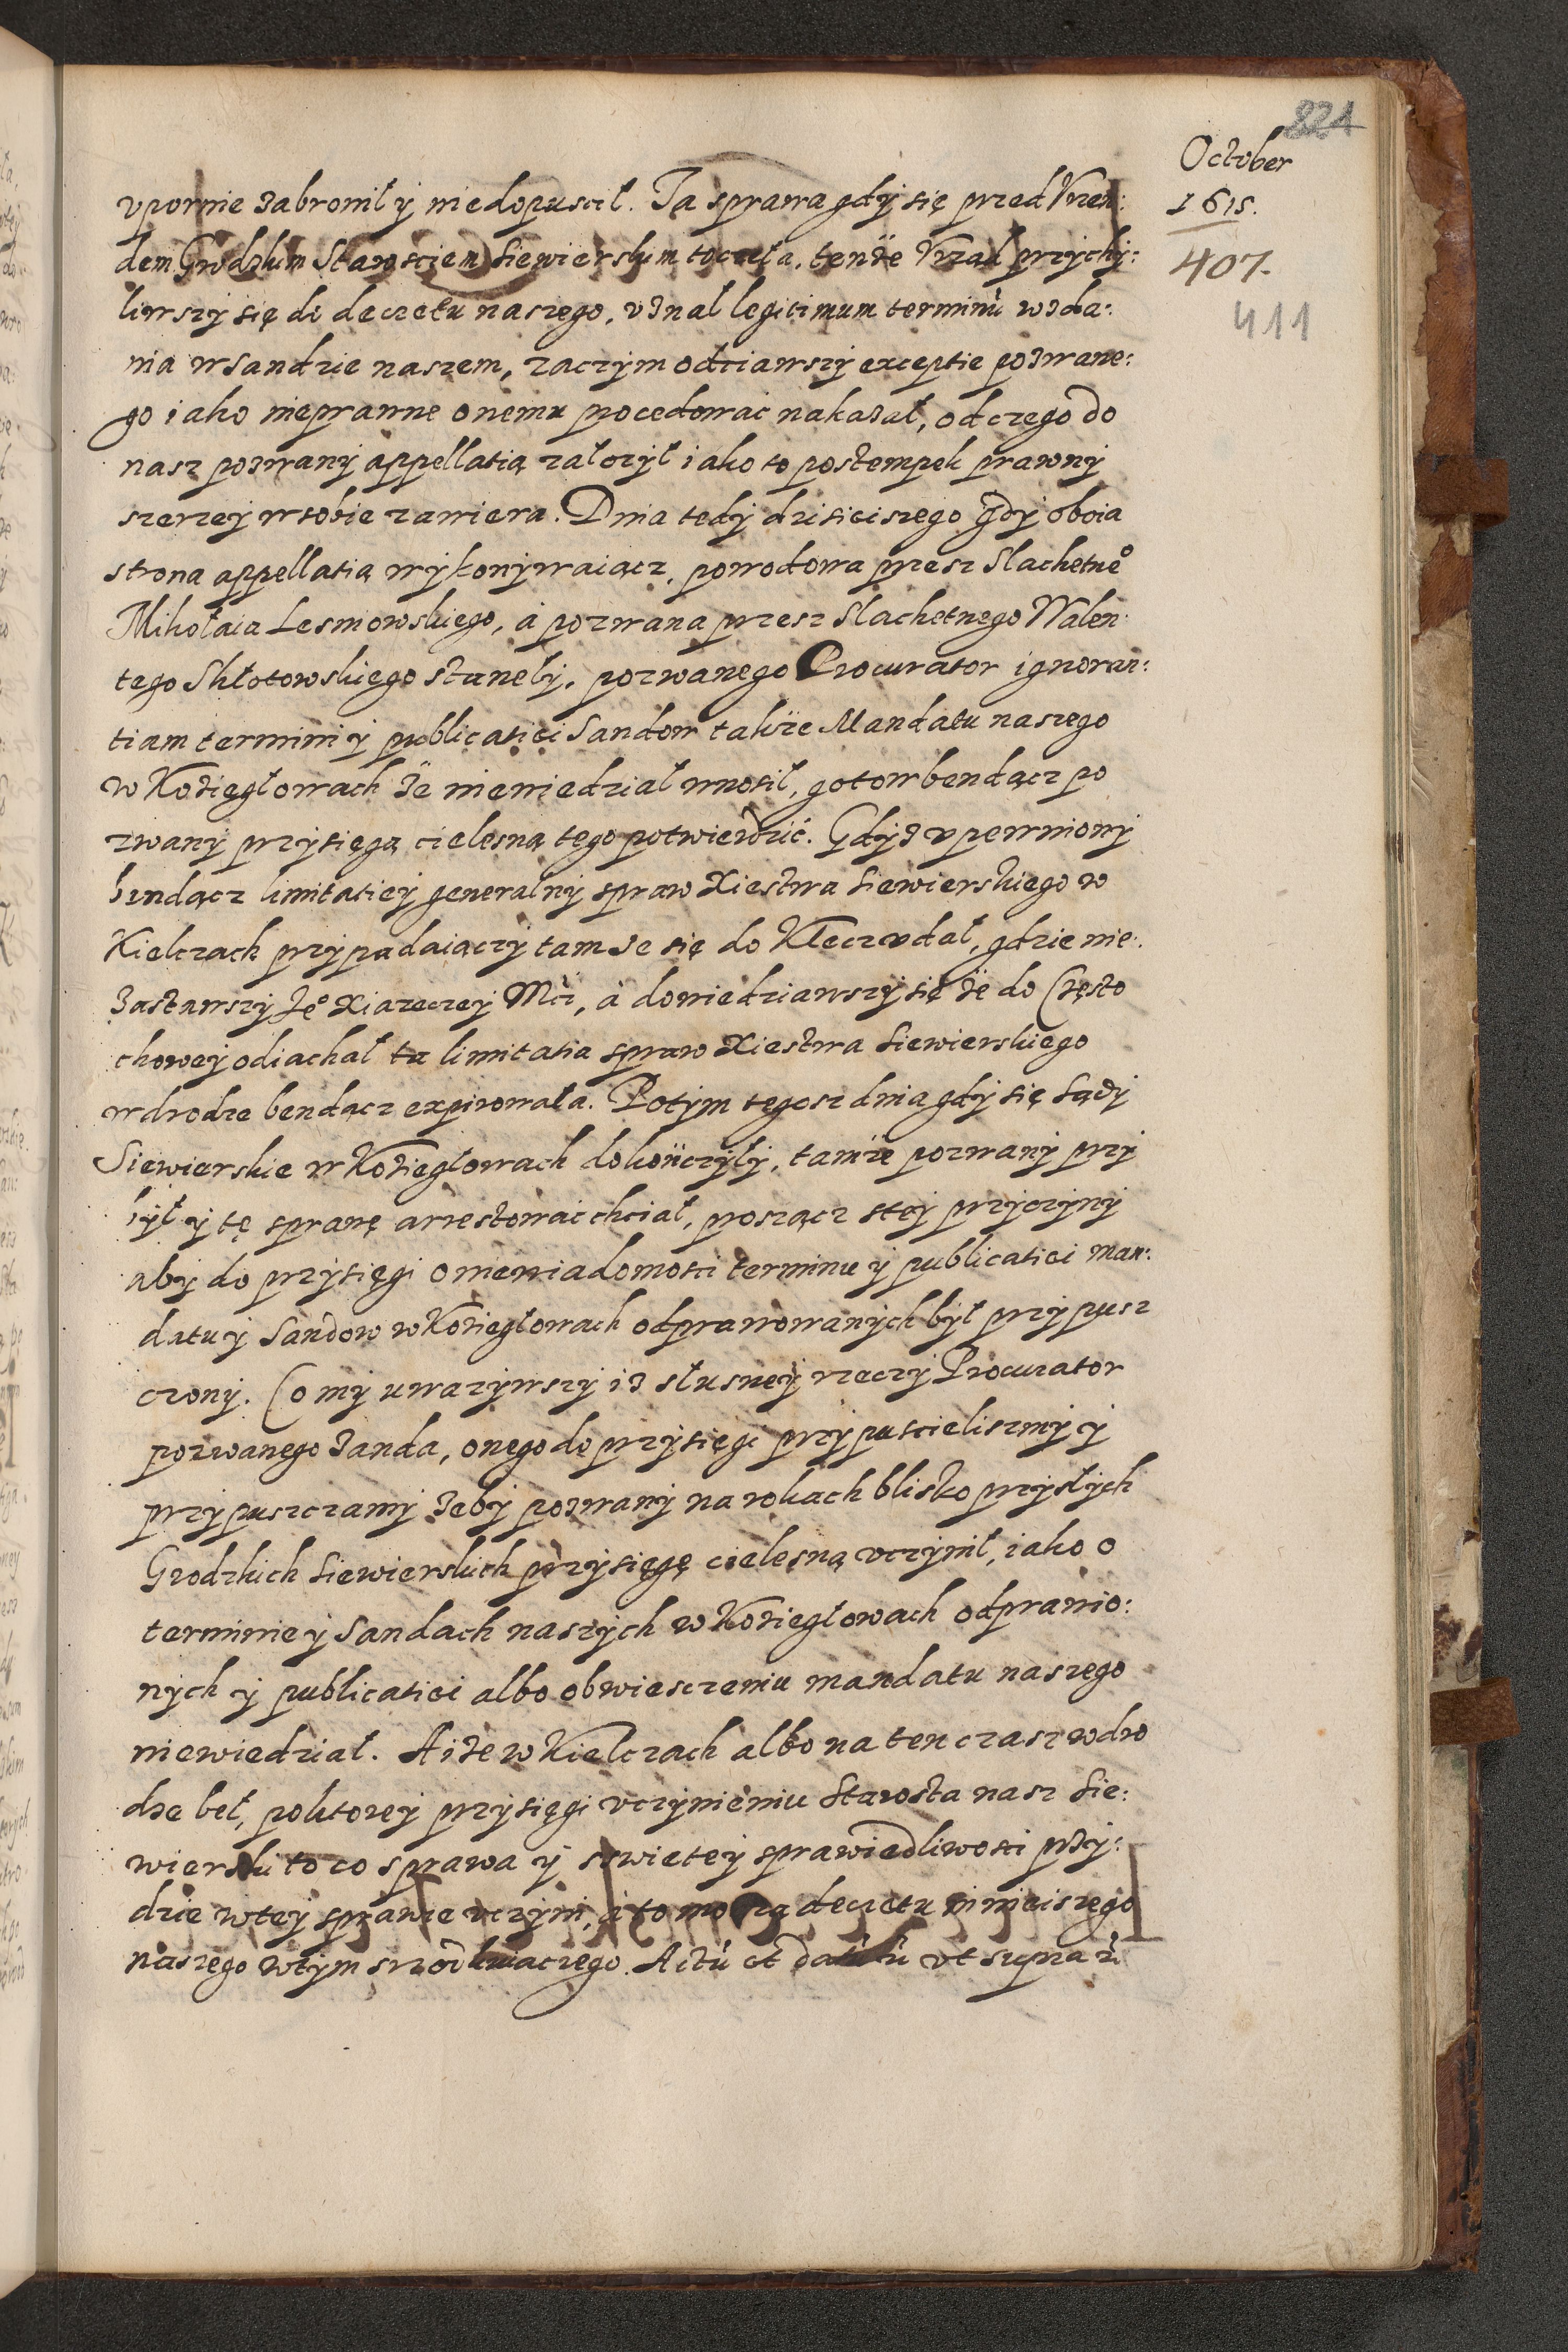 221
October
1615.
407.
411
vpornie zabronił y niedopuscił. Ta sprawa gdy się przed Vrzen:
dem Grodzkim Starosciem Siewierskim toczeła, tenże Vrzad przychy:
liwszy się do decretu naszego, vznal legitimum terminū wzda:
nia w Sandzie naszem, zaczym odciawszy exceptie pozwane:
go iako nieprawne onemu pocedowac nakazał, od czego do
nasz pozwany appellatią założył iako to postempek prawny
szerzey w sobie zawiera. Dnia tedy dzisieiszego gdy oboia
strona appellatią wykonywaiącz, powodowa przesz Slachetne°
Mikołaia Lesniowskiego, á pozwana przesz Slachetnego Walen:
tego Skłotowskiego stanely, pozwanego Procurator ignoran:
tiam termini y publicatiei Sandow także Mandatu naszego
w Koziegłowach że niewiedział wnosił, gotow bendącz po
zwany przysięgą cielesną tego potwierdzić. Gdyz vpewniony
bendącz limitatiey generalny spraw Xiestwa Siewierskiego w
Kielczach przypadaiączy tamże się do Kielcz vdał, gdzie nie:
zastawszy Je° Xiazeczey Mći, á dowiedziawszy się że do Często
chowey odiachał ta limitatia spraw Xiestwa Siewierskiego
w drodze bendącz expirowała. Potym tegosz dnia gdy się Sądy
Siewierskie w Koziegłowach dokończyły, tamże pozwany przy
był y tę sprawę arrestowac chciał, proszącz stey przyczyny
aby do przysięgi o niewiadomosci terminu y publicatiei man:
datu y Sandow w Koziegłowach odprawowanych był przypusz
czony. Co my uwazywszy iz słusney rzeczy Procurator
pozwanego żanda, onego do przysięgi przypuscieliszmy y
przypuszczamy żeby pozwany na rokach blisko przysłych
Grodzkich Siewierskich przysięgę cielesną vczynił, iako o
terminie y Sandach naszych w Koziegłowach odprawio:
nych y publicatiei albo obwiesczeniu mandatu naszego
niewiedział. A iże w Kielczach albo na ten czasz w dro
dze beł, po ktorey przysięgi vczynieniu Starosta nasz Sie:
wierski to co s prawa y s swietey sprawiedliwosci przy:
dzie w tey sprawie vczyni, á to mocą decretu ninieiszego
naszego w tym srzodkuiaczego. Actū et datū ut supra